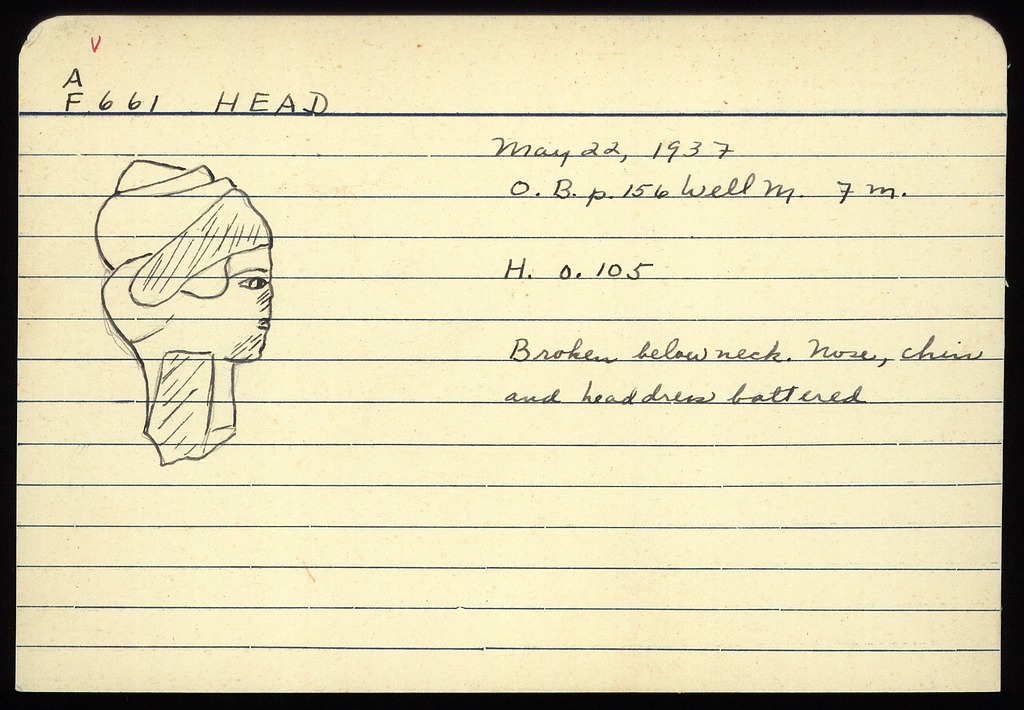 V
A
F 661 HEAD
May 22, 1937
O. B. p. 156 Well M. 7 m.
H. 0. 105
Broken below neck. Nose, chin
and headdress battered